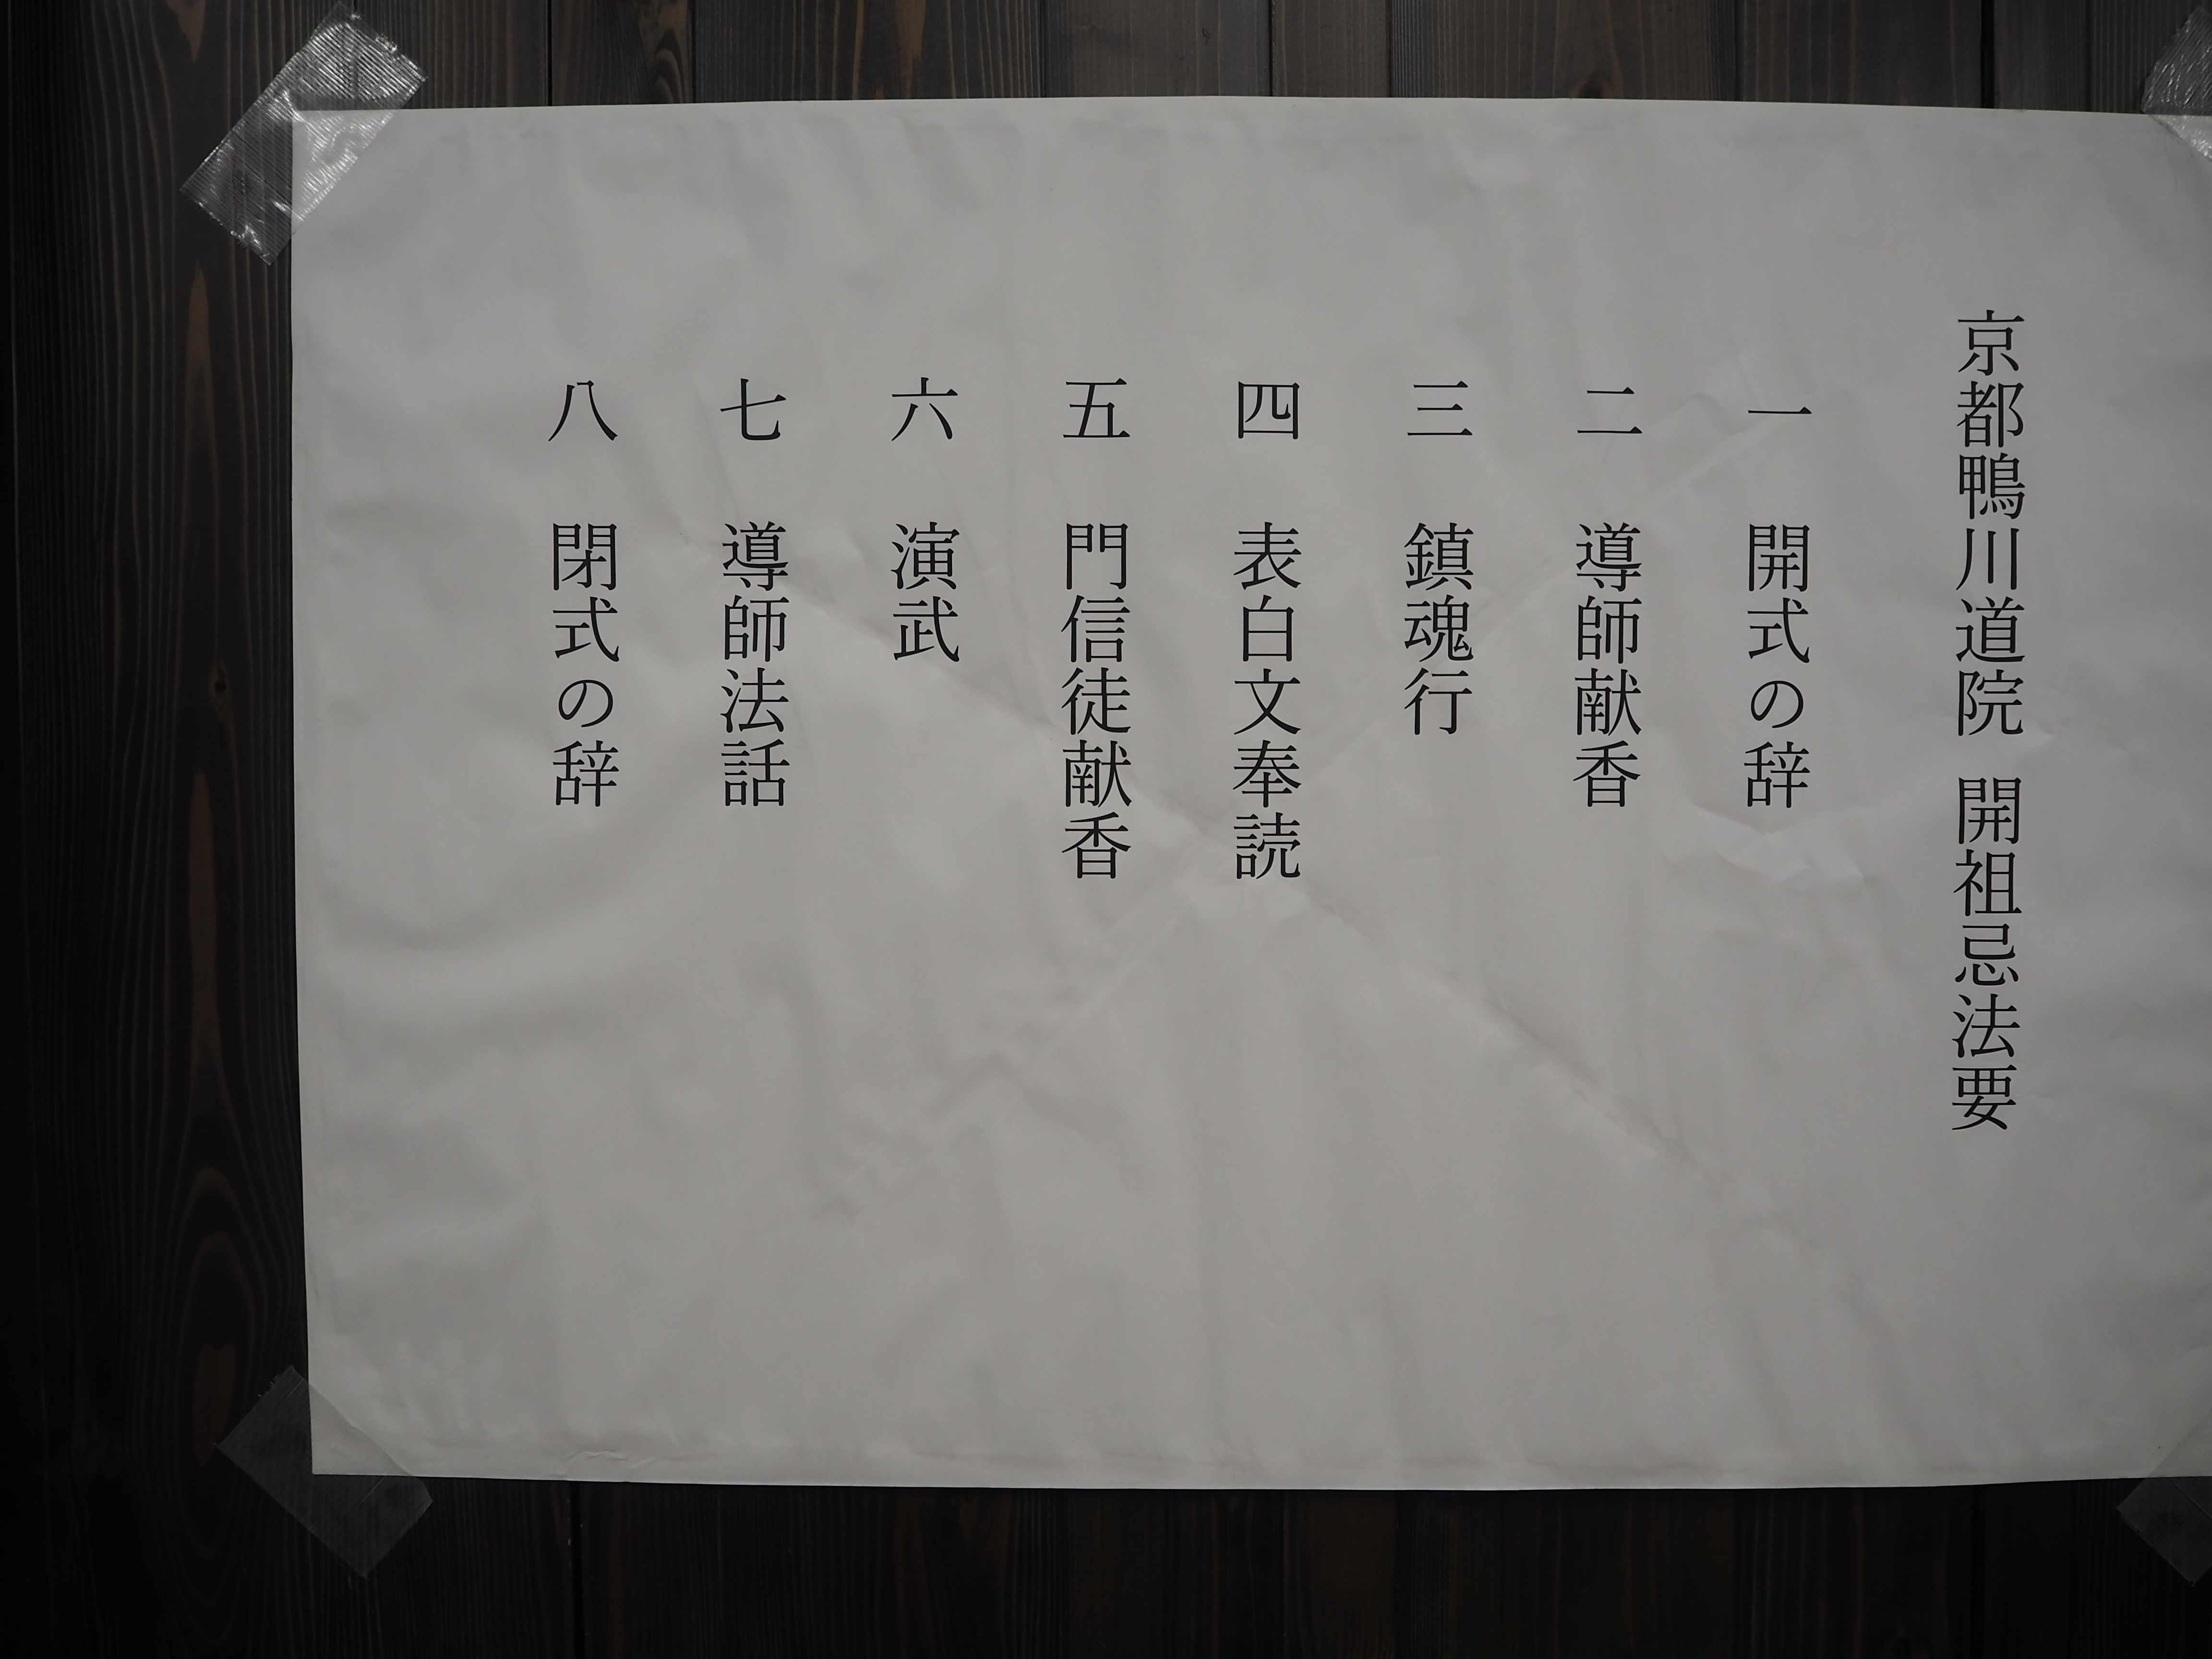 京都鴨川道院 開祖忌法要
一 開式の辞
二 導師献香
三 鎮魂行
四 表白文奉読
五 門信徒献香
六 演武
七 導師法話
八 閉式の辞